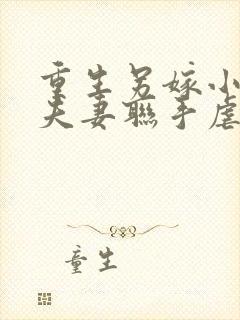 重生另嫁小
夫妻聯手虐
童生